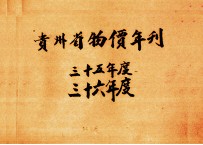 貴州省物價年刊
三十五年度
三十六年度